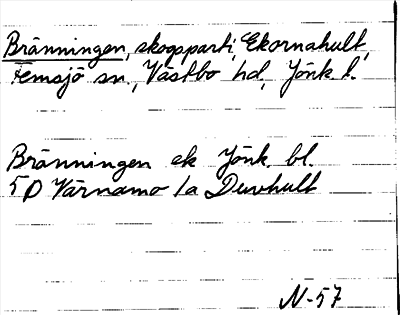 Bränningen, skogsparti, Ekornahult,
Femsjö sn., Västbo hd, Jönk. l.
Bränningen ek Jönk. bl.
5 D Värnamo 1a Duvhult
N-57